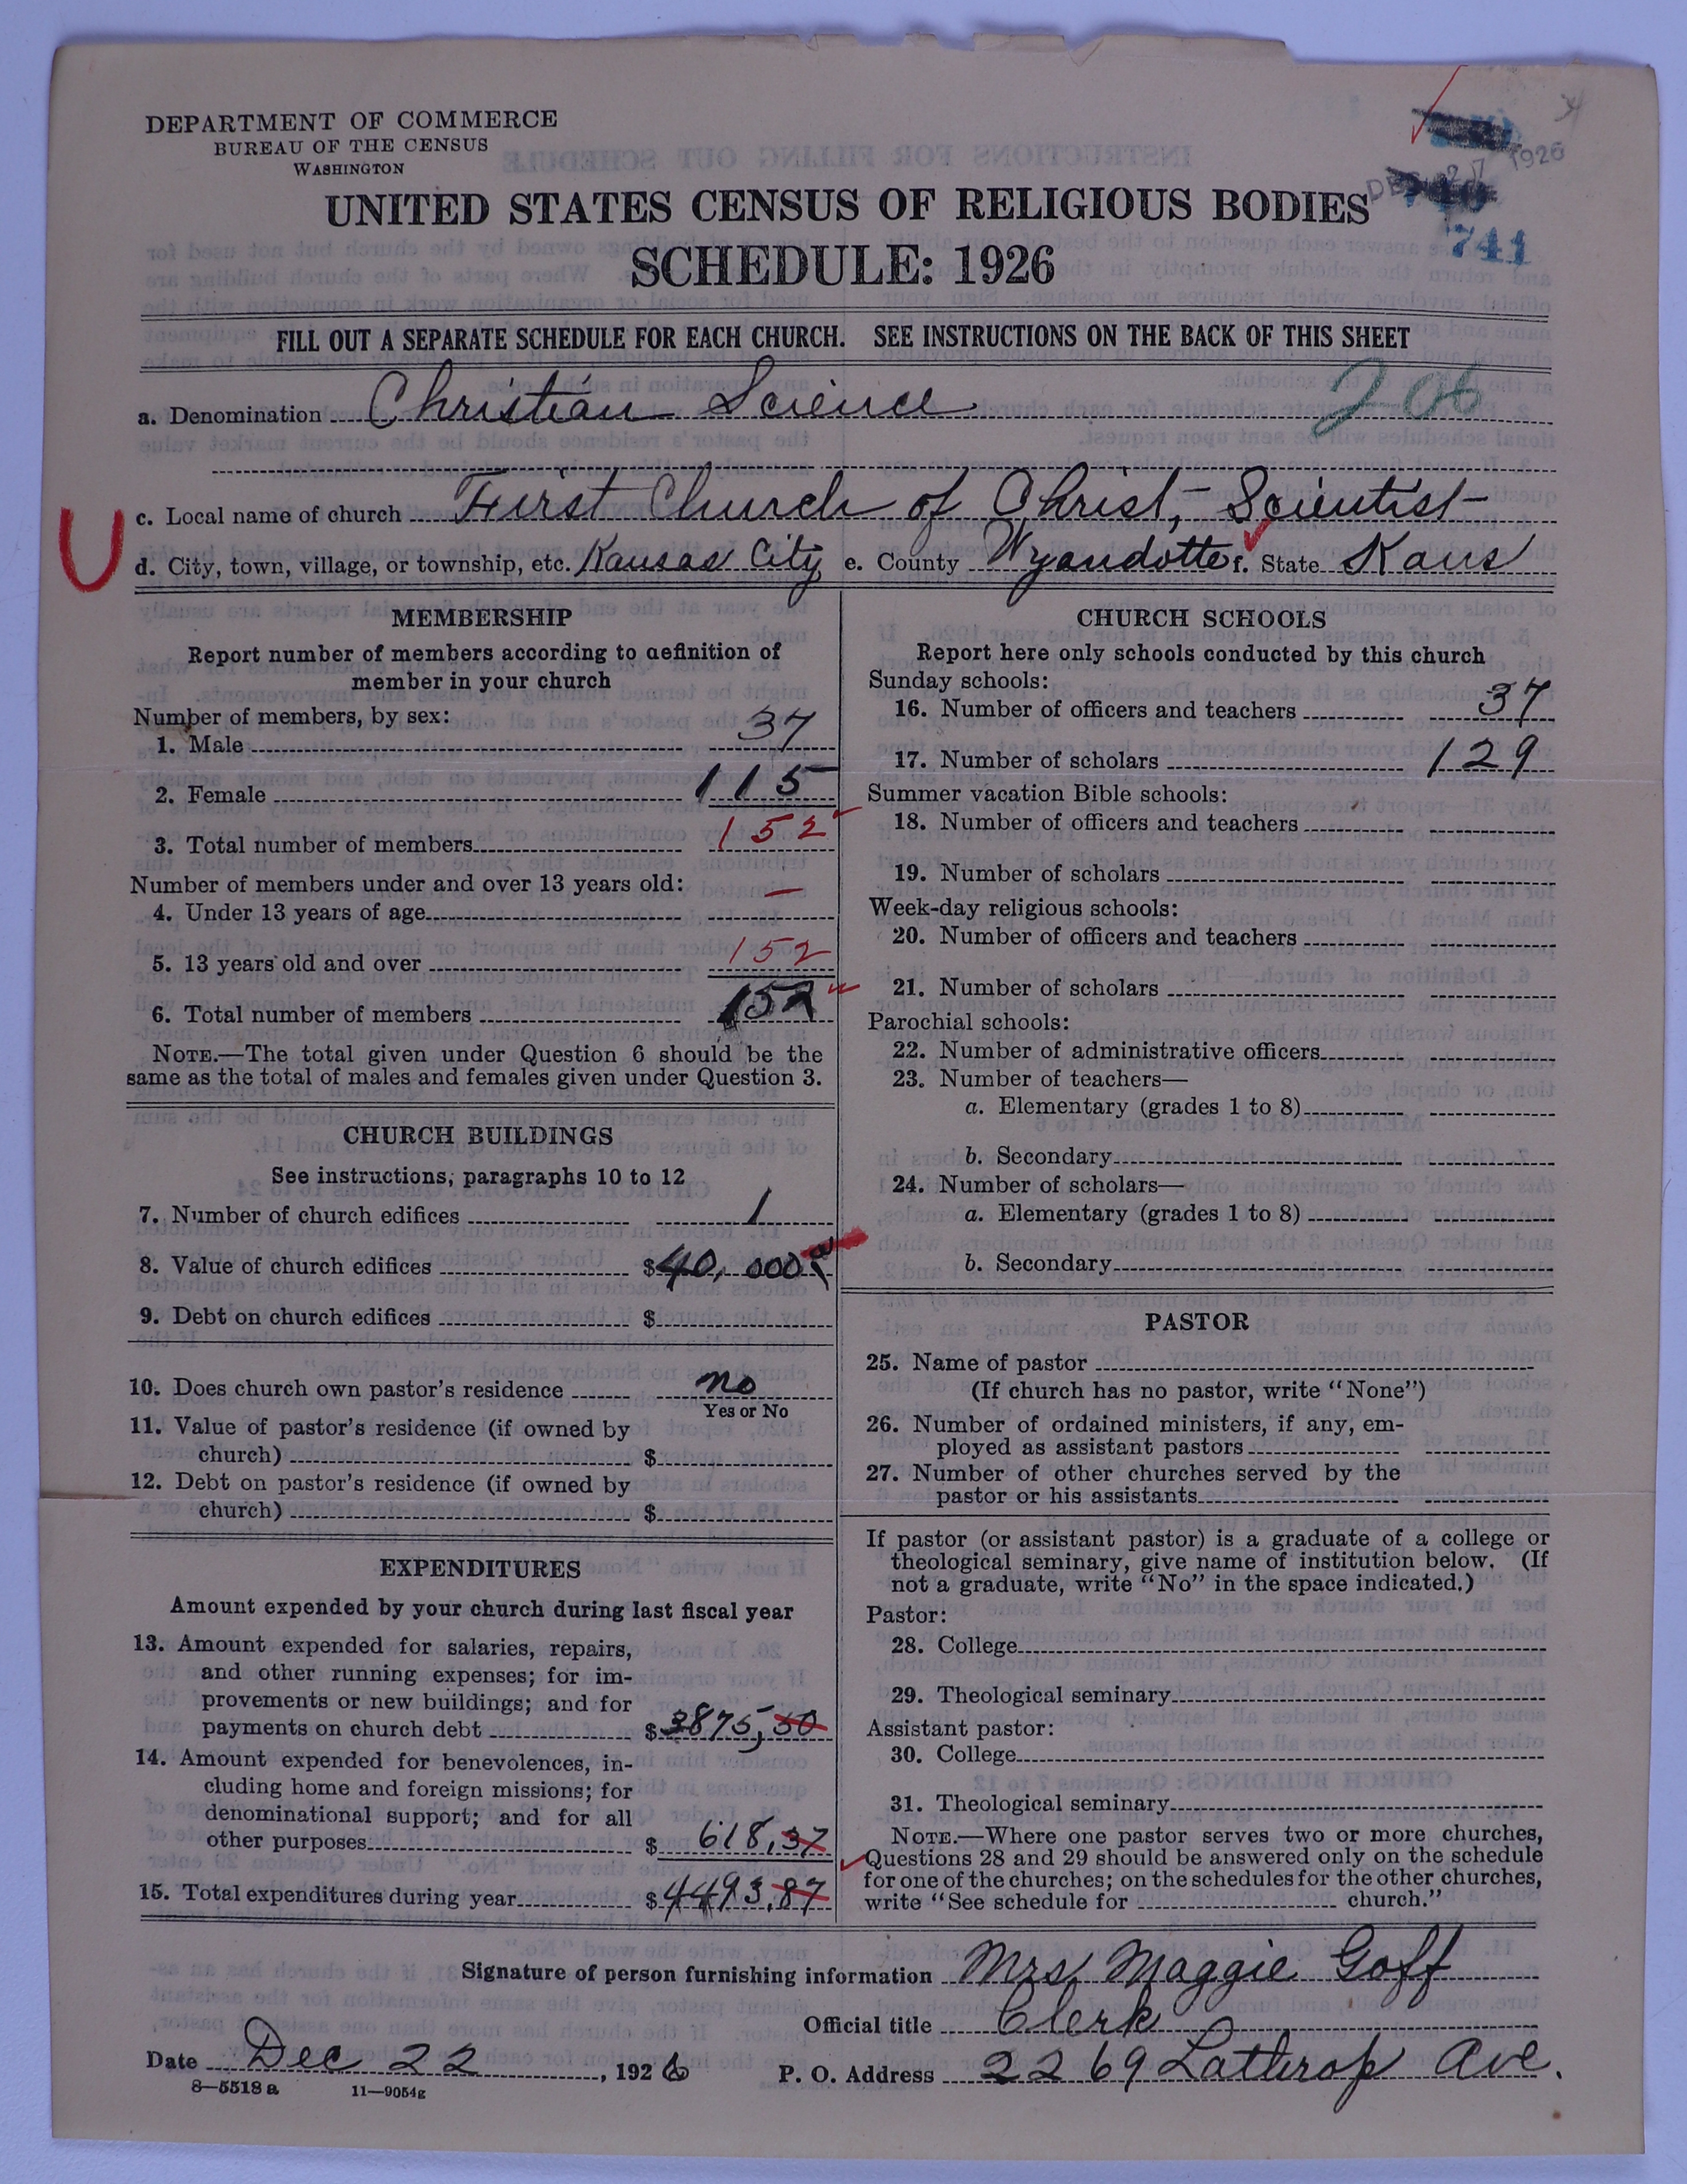 DEPARTMENT OF COMMERCE
BUREAU OF THE CENSUS
WASHINGTON
DEC 27 1926
741
UNITED STATES CENSUS OF RELIGIOUS BODIES
SCHEDULE: 1926
FILL OUT A SEPARATE SCHEDULE FOR EACH CHURCH. SEE INSTRUCTIONS ON THE BACK OF THIS SHEET
a. Denomination Christian Science 206
c. Local name of church First Church of Christ, Scientist
U
d. City, town, village, or township, etc. Kansas City e. County Wyandotte f. State Kans
MEMBERSHIP
Report number of members according to definition of
member in your church
Number of members, by sex:
1. Male 37
2. Female 115
3. Total number of members 152
Number of members under and over 13 years old:
4. Under 13 years of age —
5. 13 years old and over 152
6. Total number of members 152
NOTE.—The total given under Question 6 should be the
same as the total of males and females given under Question 3.
CHURCH BUILDINGS
See instructions, paragraphs 10 to 12
7. Number of church edifices 1
8. Value of church edifices $40,000
9. Debt on church edifices $
10. Does church own pastor's residence no
Yes or No
11. Value of pastor's residence (if owned by
church) $
12. Debt on pastor's residence (if owned by
church) $
EXPENDITURES
Amount expended by your church during last fiscal year
13. Amount expended for salaries, repairs,
and other running expenses; for im-
provements or new buildings; and for
payments on church debt $3875,50
14. Amount expended for benevolences, in-
cluding home and foreign missions; for
denominational support; and for all
other purposes $ 618,37
15. Total expenditures during year $4493.87
CHURCH SCHOOLS
Report here only schools conducted by this church
Sunday schools:
16. Number of officers and teachers 37
17. Number of scholars 129
Summer vacation Bible schools:
18. Number of officers and teachers
19. Number of scholars
Week-day religious schools:
20. Number of officers and teachers
21. Number of scholars
Parochial schools:
22. Number of administrative officers
23. Number of teachers—
a. Elementary (grades 1 to 8)
b. Secondary
24. Number of scholars—
a. Elementary (grades 1 to 8)
b. Secondary
PASTOR
25. Name of pastor
(If church has no pastor, write "None")
26. Number of ordained ministers, if any, em-
ployed as assistant pastors
27. Number of other churches served by the
pastor or his assistants
If pastor (or assistant pastor) is a graduate of a college or
theological seminary, give name of institution below. (If
not a graduate, write "No" in the space indicated.)
Pastor:
28. College
29. Theological seminary
Assistant pastor:
30. College
31. Theological seminary
NOTE.—Where one pastor serves two or more churches,
Questions 28 and 29 should be answered only on the schedule
for one of the churches; on the schedules for the other churches,
write "See schedule for church."
Signature of person furnishing information Mrs. Maggie Goff
Official title Clerk
Date Dec 22, 1926 P. O. Address 2269 Lathrop Ave.
8—5518a 11—9054g